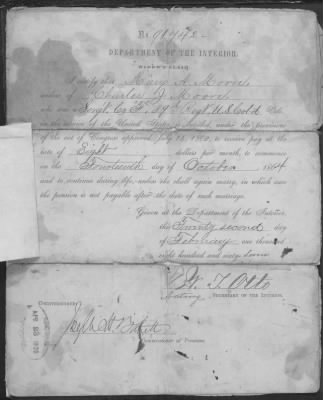 No.
DEPARTMENT OF THE INTERIOR.
WIDOW'S CLAIM.
I certify that Mary A. Moore
widow of Charles J. Moore
who was a Sergt. Co. F. 29th Regt. U.S. Cold.
in the service of the United States, is entitled, under the provisions
of the act of Congress approved July 14, 1862, to receive pay at the
rate of Eight dollars per month, to commence
on the Fourteenth day of October 1864
and to continue during life, unless she shall again marry, in which case
the pension is not payable after the date of such marriage.
Given at the Department of the Interior,
this Twenty second day
of February one thousand
eight hundred and sixty
W. T. Otto
Acting SECRETARY OF THE INTERIOR.
Joseph H. Barrett
Commissioner of Pensions.